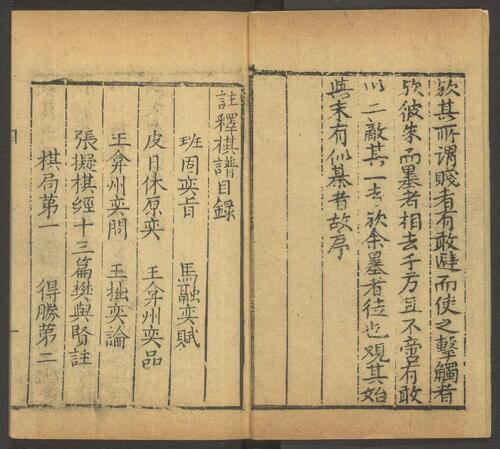 欤其所谓賤者有敢避而使之擊觸者
欤彼朱而墨者相去千万且不啻有敢
以二敵其一去欤余墨者徒也观其始
與末有似綦者故序
註釋棋譜目錄
班固奕旨 馬融奕賦
皮日休原奕 王弇州奕品
王弇州奕問 王拙奕論
張擬棋經十三篇樊與賢註
棋局第一 得勝第二